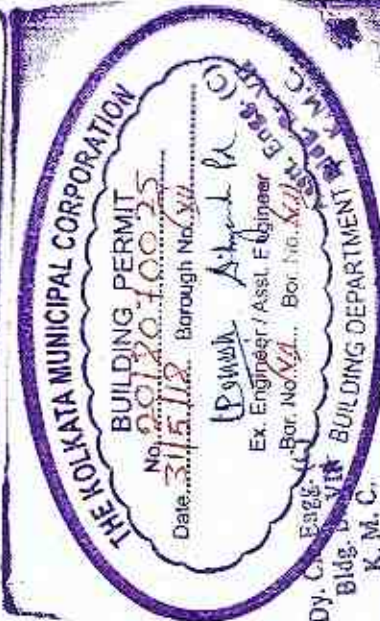 THE KOLKATA MUNICIPAL CORPORATION
BUILDING PERMIT
No. 2012070025
Date 31/5/12 Borough No. VII
Ex. Engineer / Asst. Engineer
Bor. No. VII Bor. No. VII
BUILDING DEPARTMENT
Asst. Engr. (C)
K. M. C.
Dy. Engr.
Bldg. VII
K. M. C.